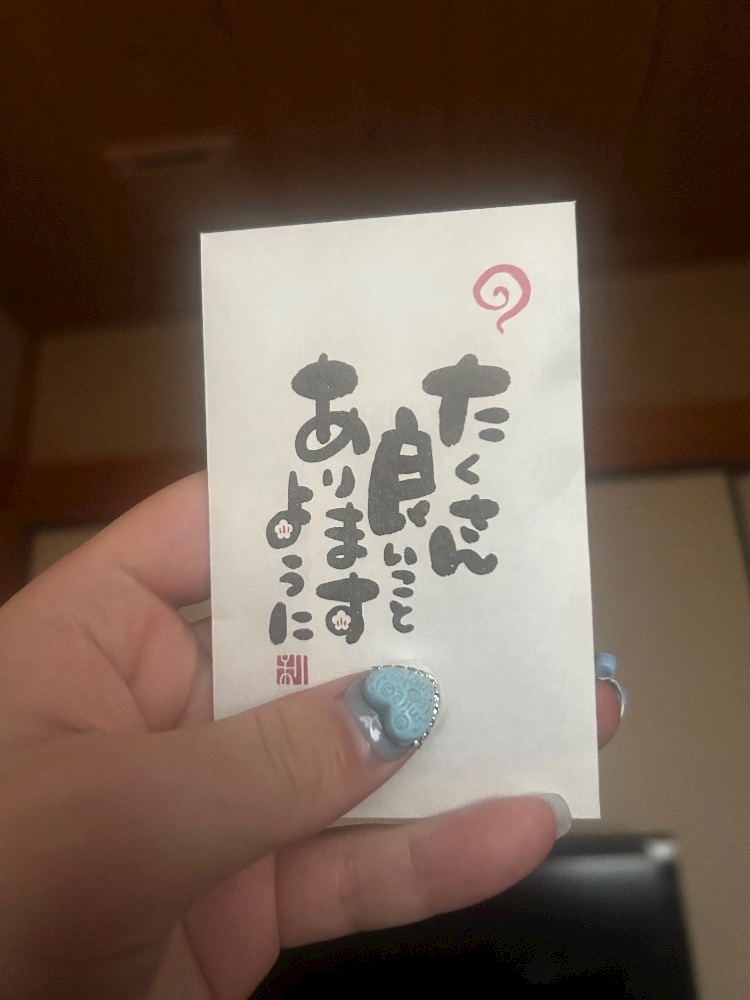 たくさん
良いこと
あります
ように